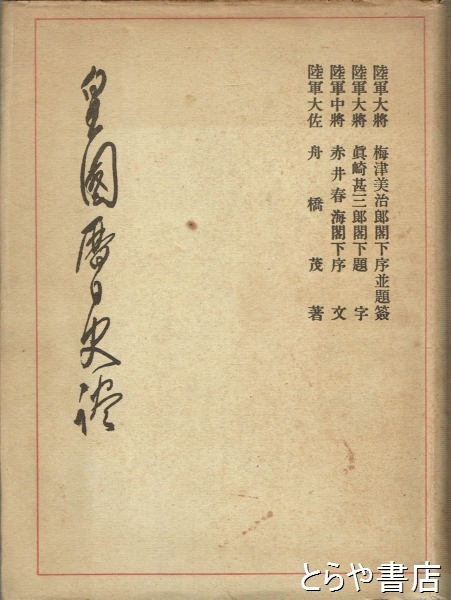 陸軍大將 梅津美治郎閣下序並題簽
陸軍大將 眞崎甚三郎閣下題字
陸軍中將 赤井春海閣下序文
陸軍大佐 舟橋茂著
皇國暦日史談
とらや書店